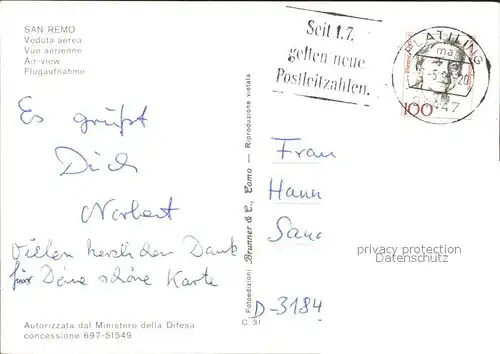 SAN REMO
Veduta aerea
Vue aérienne
Air-view
Flugaufnahme
Seit 1.7.
gelten neue
Postleitzahlen.
100
Es grüßt
Dich
Norbert
Vielen herzlichen Dank
für Deine schöne Karte
Autorizzata dal Ministero della Difesa
concessione 697-51549
Fotoedizioni Brunner & C., Como — Riproduzione vietata
C 31
Frau
Hann
Sand
D-3184
privacy protection
Datenschutz